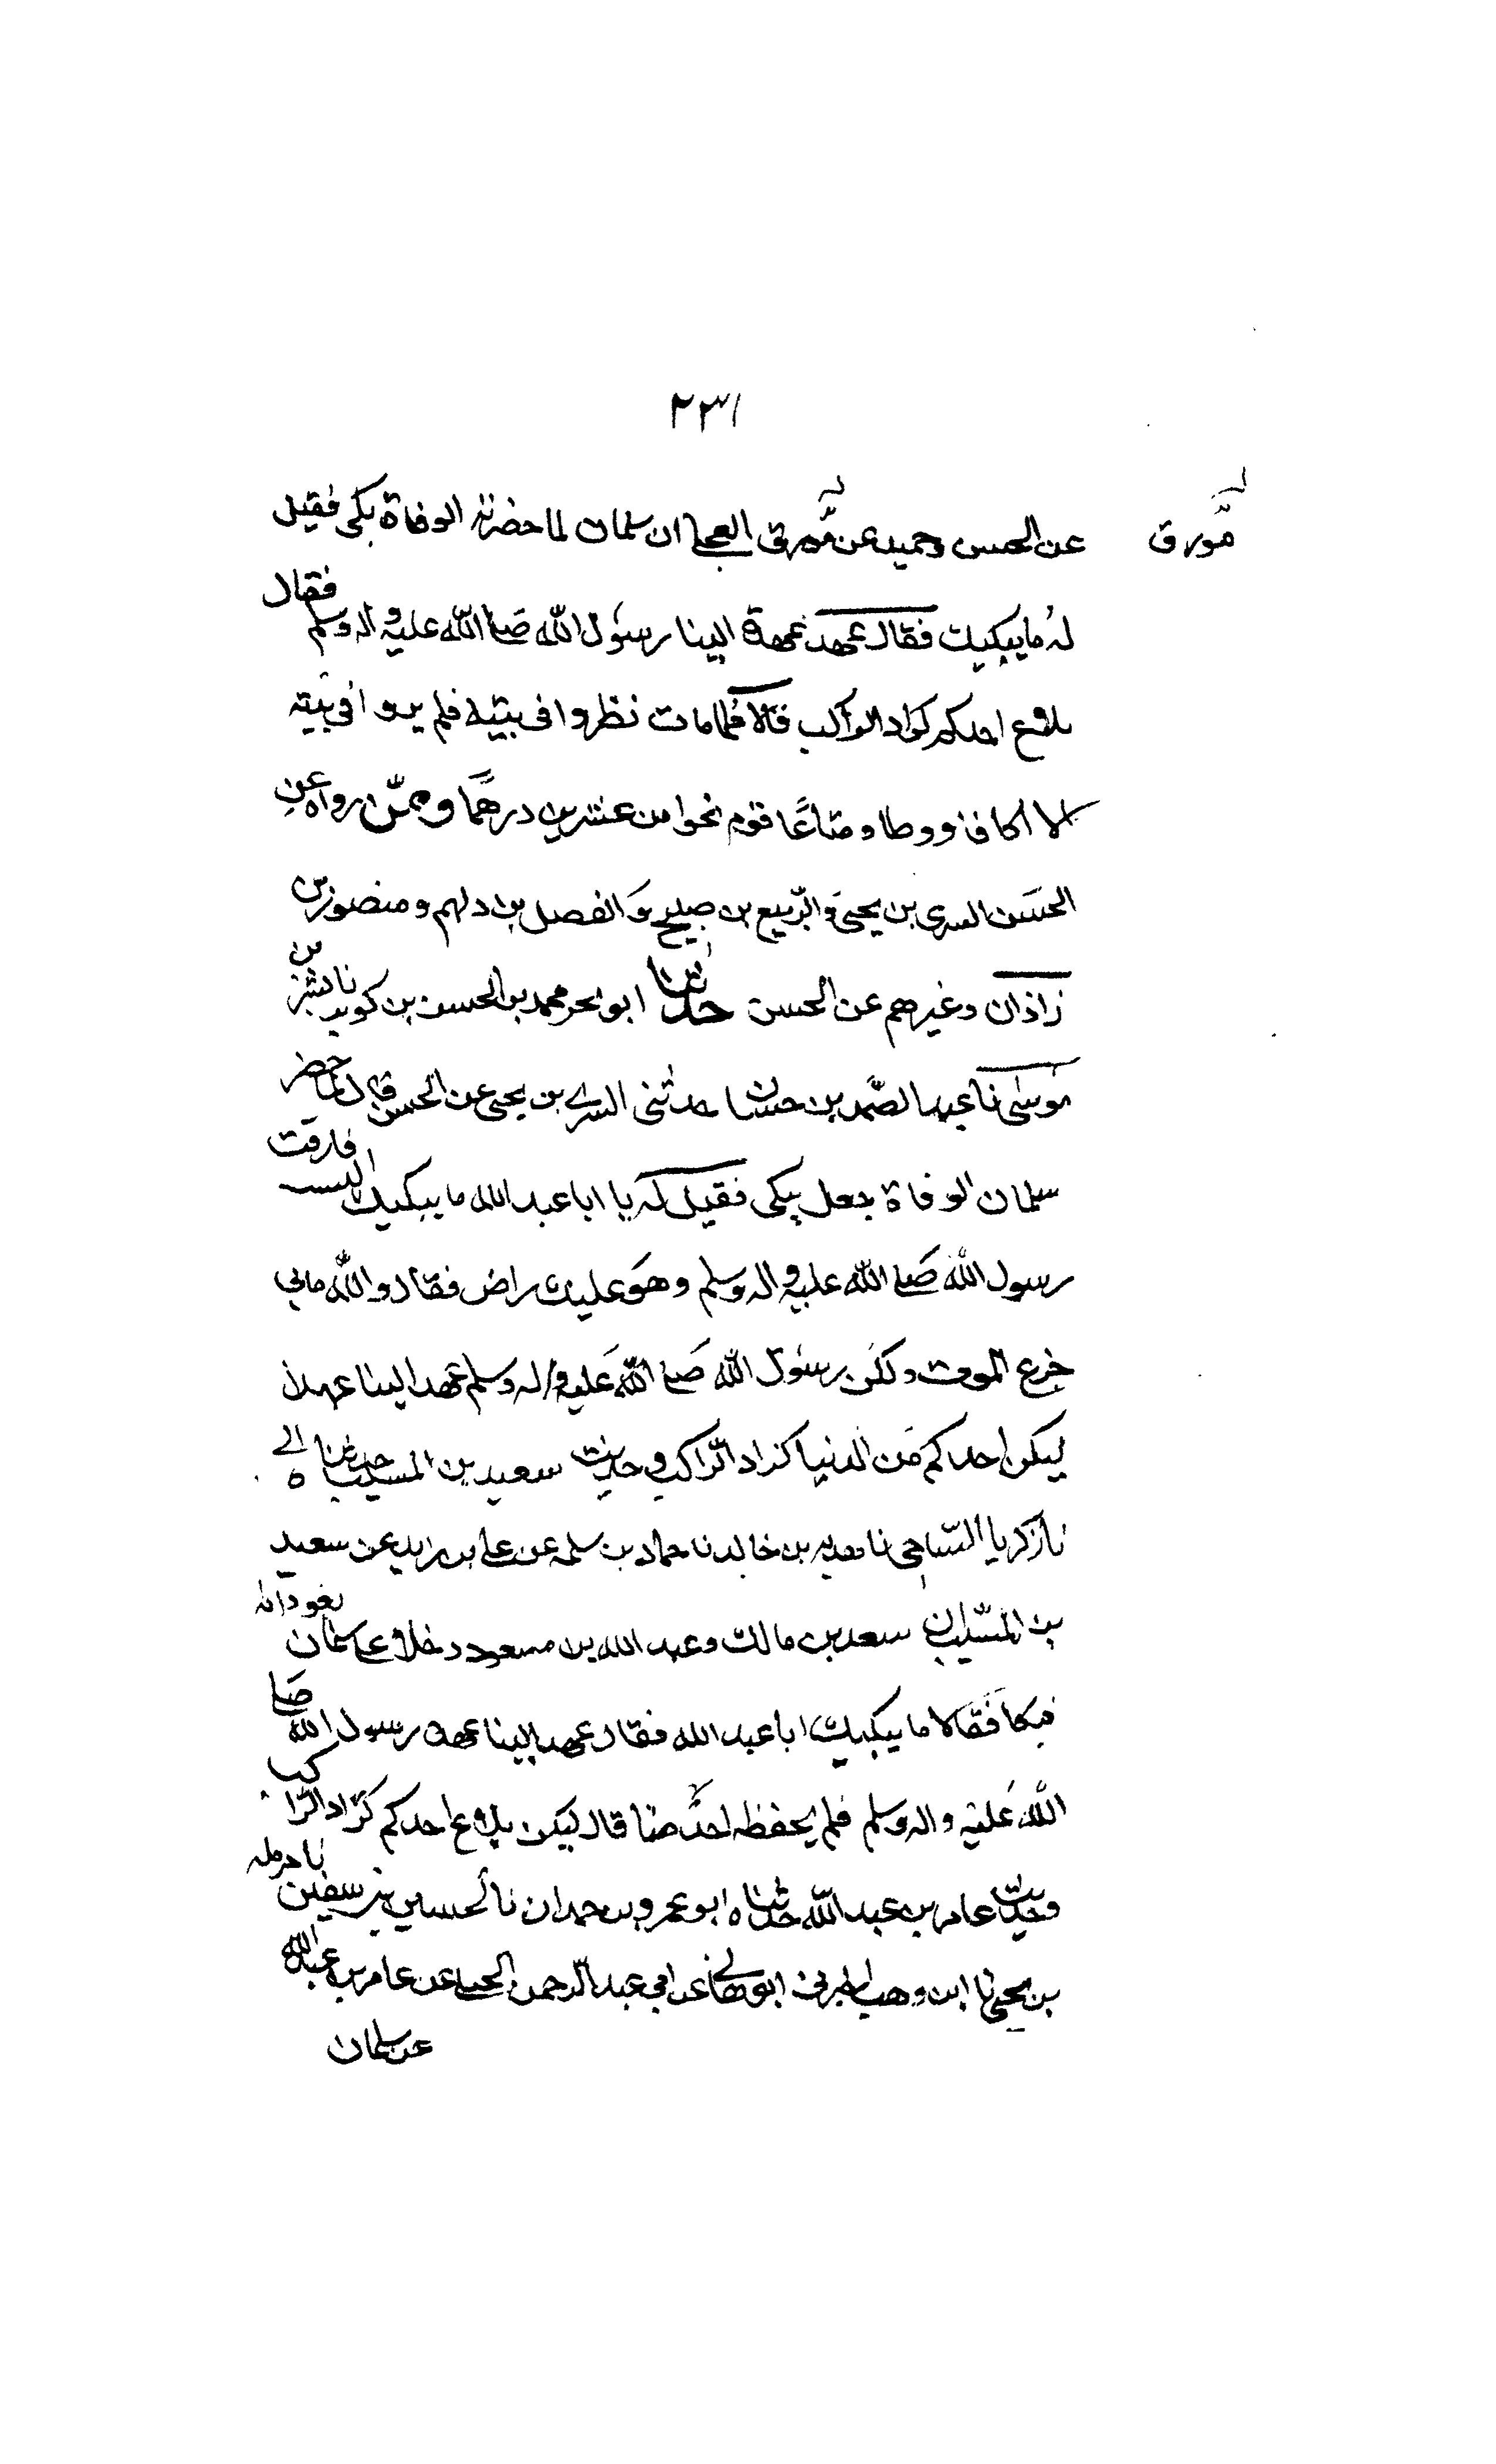 ٢٣١
عن الحسن وحميد عن مورق العجلي ان سلمان لما حضرته الوفاة بكى فقيل
مورق
له ما يبكيك فقال عهد عهده الينا رسول الله صلى الله عليه واله وسلم فقال
بلاغ احدكم كزاد الراكب قالا فلما مات نظروا في بيته فلم يروا في بيته
الا اكافا ووطا ومتاعا قوم نحوا من عشرين درهما وممن رواه عن
الحسن السرى بن يحيى والربيع بن صبيح والفضل بن دلهم ومنصور بن
زاذان وغيرهم عن الحسن حدثنا ابو بحر محمد بن الحسن بن كوثر نا بشر بن
موسى نا عبد الصمد بن حسان حدثنى السرى بن يحيى عن الحسن قال لما حضر
سلمان الوفاة جعل يبكى فقيل له يا ابا عبد الله ما يبكيك اليس فارقت
رسول الله صلى الله عليه واله وسلم وهو عليك راض فقال والله مابي
جزع الموت ولكن رسول الله صلى الله عليه واله وسلم عهد الينا عهدا
ليكن احدكم من الدنيا كزاد الراكب وحديث سعيد بن المسيب حدثناه ابي
نا زكريا الساجى نا هدبه بن خالد نا حماد بن سلمه عن على بن زيد عن سعيد
بن المسيب ان سعد بن مالك وعبد الله بن مسعود دخلا على سلمان يعودانه
فبكا فقالا ما يبكيك ابا عبد الله فقال عهد الينا عهده رسول الله صلى
الله عليه واله وسلم فلم يحفظه احد منا قال ليكن بلاغ احدكم كزاد الراكب
وحديث عامر بن عبد الله حدثناه ابو عمرو بن حمدان نا الحسين بن سفين نا حرمله
بن يحيى نا ابن وهب اخبرنى ابو هانى عن ابي عبد الرحمن الحبلى عن عامر بن عبد الله
عن سلمان